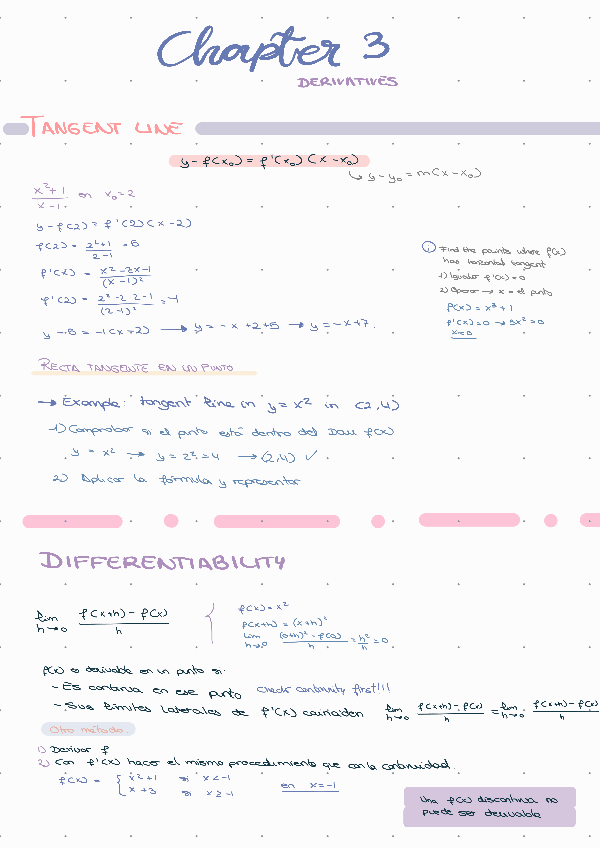 Chapter 3
DERIVATIVES
TANGENT LINE
y-f(x₀) = f'(x₀) (x-x₀)
↳ y-y₀ = m(x-x₀)
x²+1 / x-1 en x₀=2
y-f(2) = f'(2)(x-2)
f(2) = 2²+1 / 2-1 = 5
f'(x) = x²-2x-1 / (x-1)²
f'(2) = 2²-2·2-1 / (2-1)² = -1
y-5 = -1(x+2) → y = -x+2+5 → y = -x+7.
① Find the points where f(x)
has horizontal tangent
1) Igualar f'(x)=0
2) Operar → x = el punto
f(x) = x³+1
f'(x)=0 → 3x²=0
x=0
RECTA TANGENTE EN UN PUNTO
→ Example: tangent line in y = x² in (2,4)
1) Comprobar si el punto está dentro del Dom f(x)
y = x² → y = 2² = 4 → (2,4) ✓
2) Aplicar la fórmula y representar
DIFFERENTIABILITY
lim h→0 f(x+h) - f(x) / h
f(x) = x²
f(x+h) = (x+h)²
lim h→0 (0+h)² - f(0) / h = h²/h = 0
f(x) es derivable en un punto si:
- Es continua en ese punto check continuity first!!!
- Sus límites laterales de f'(x) coinciden lim h→0⁻ f(x+h)-f(x) / h = lim h→0⁺ f(x+h)-f(x) / h
Otro método.
1) Derivar f
2) Con f'(x) hacer el mismo procedimiento que con la continuidad.
f(x) = { x²+1 si x<-1
x+3 si x≥-1
en x=-1
Una f(x) discontinua no
puede ser derivable